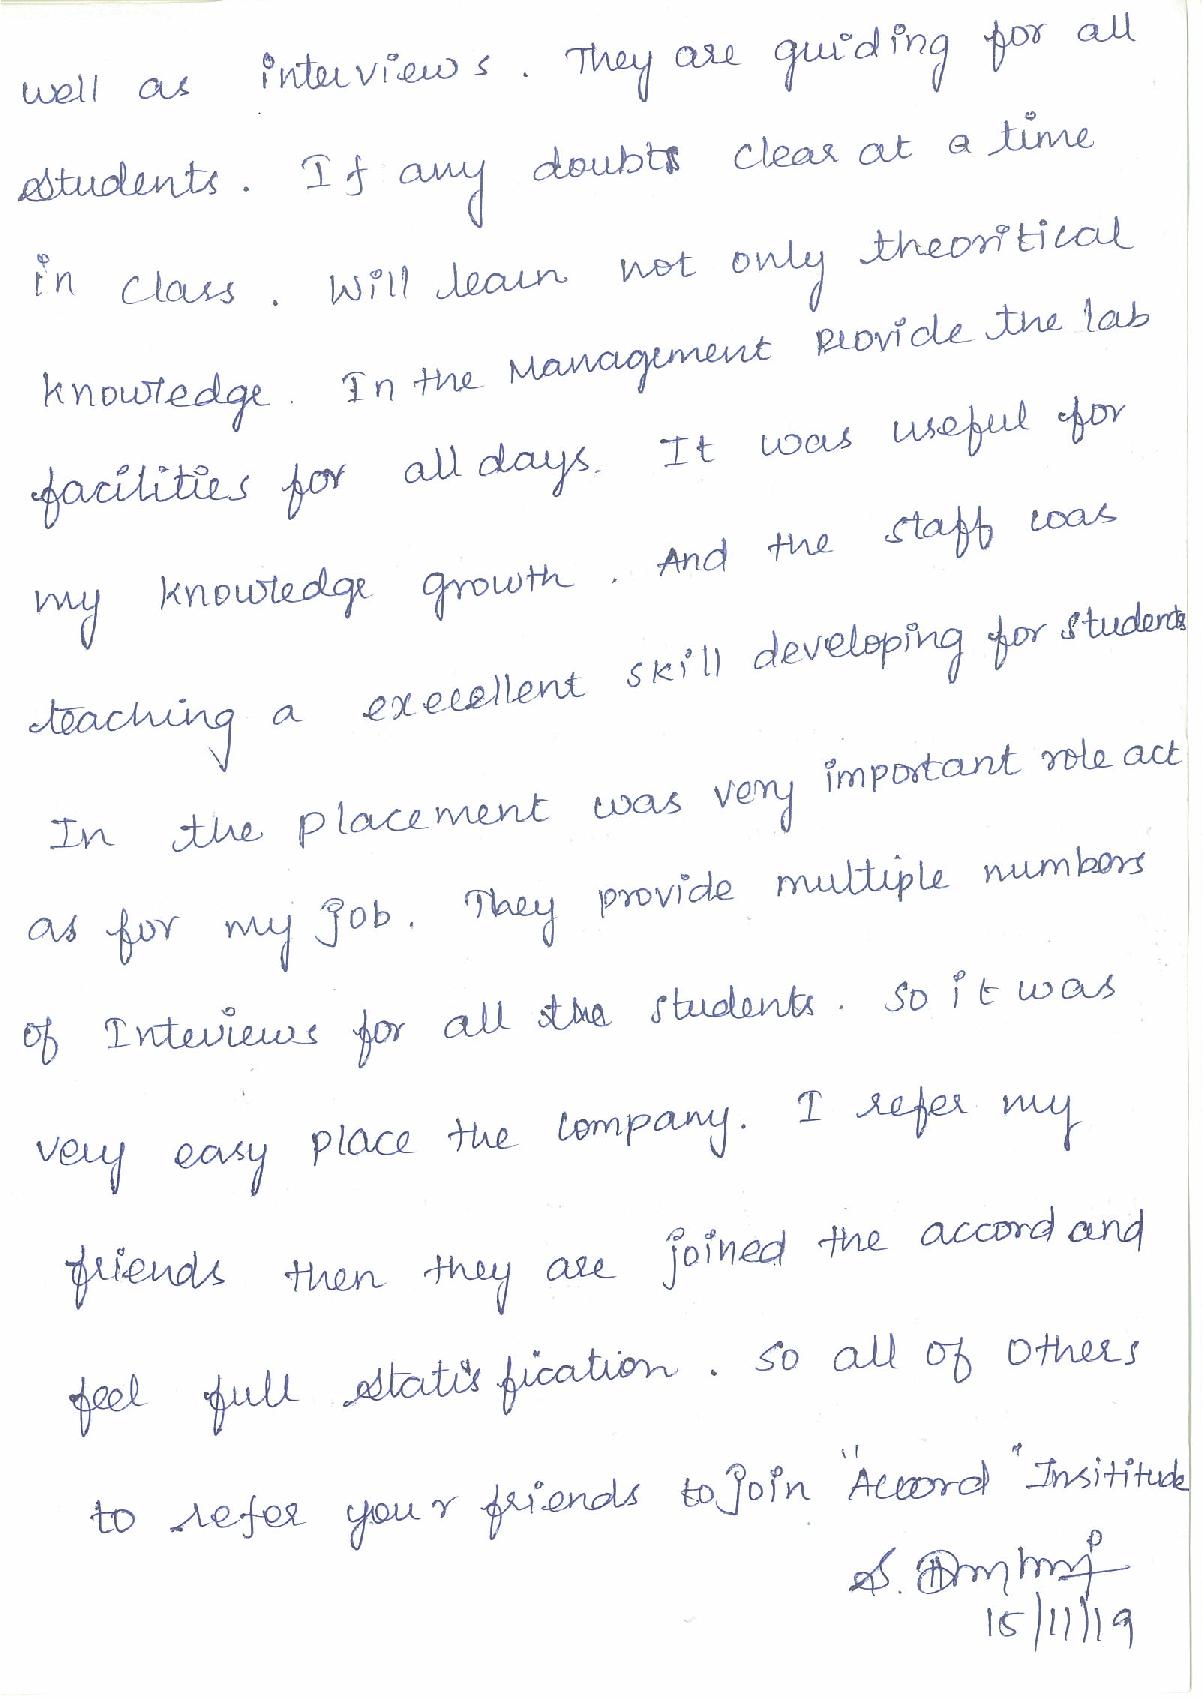 well as interviews. They are guiding for all
students. If any doubts clear at a time
in class. Will learn not only theoritical
knowledge. In the Management Provide the lab
facilities for all days. It was useful for
my knowledge growth. And the staff was
teaching a execellent skill developing for students
In the placement was very important role act
as for my job. They provide multiple numbers
of Inteviews for all the students. So it was
very easy place the company. I refer my
friends then they are joined the accord and
feel full statisfication. So all of others
to refer your friends to join "Accord" Insititude
S.
15/11/19